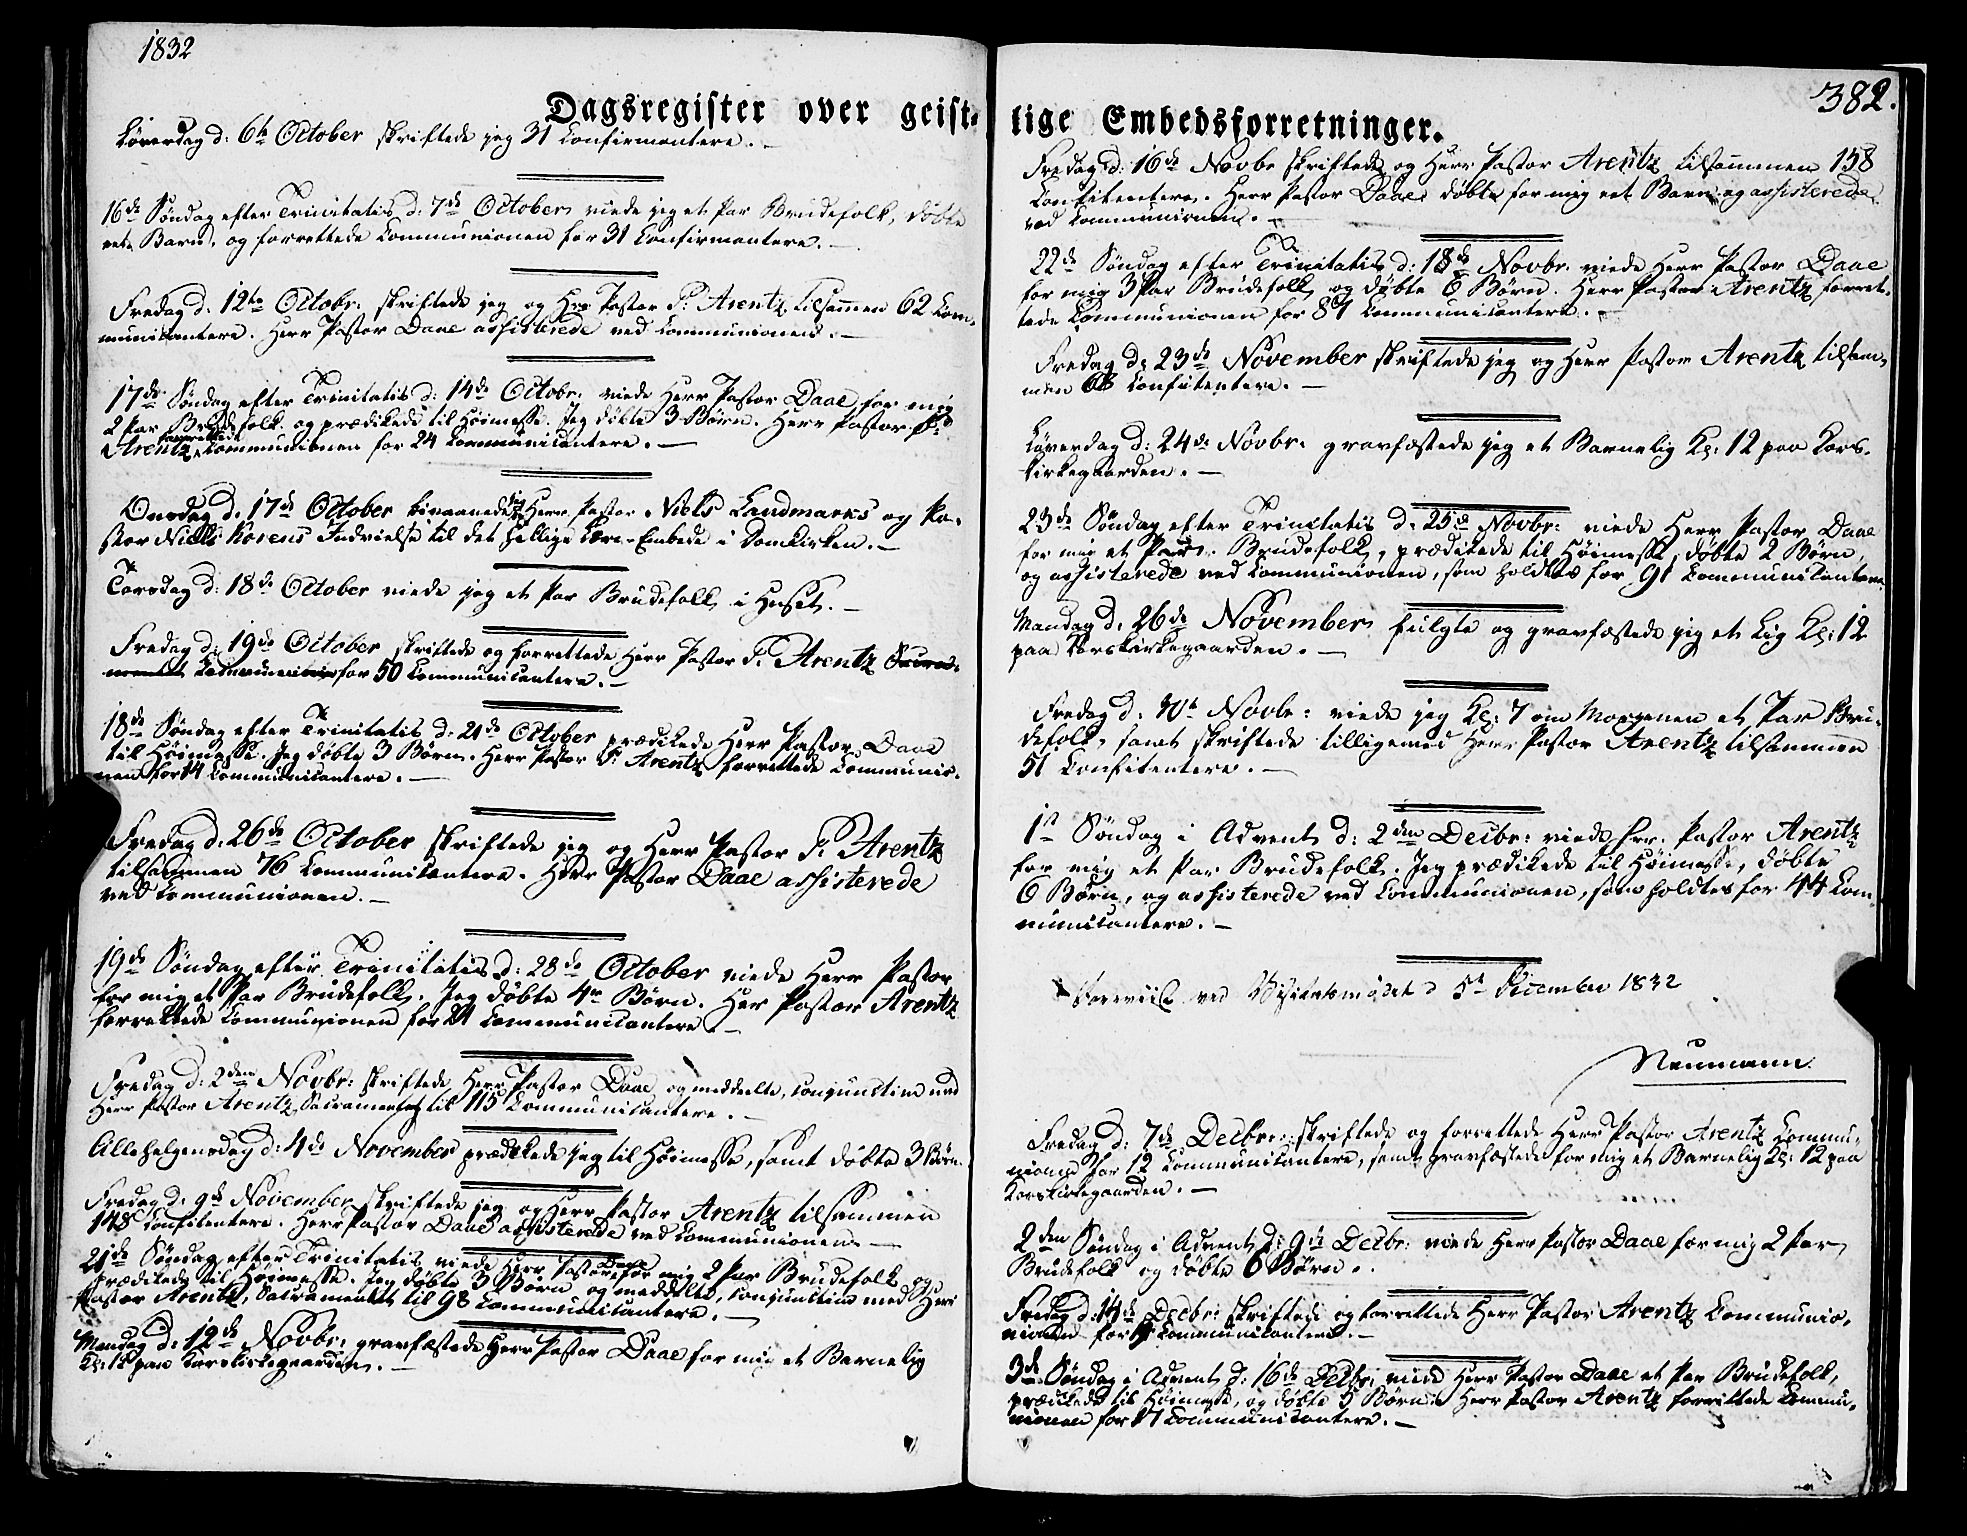 1832
Dagsregister over geist-
Løverdag d: 6te October skriftede jeg 31 Confirmantere. –
16de Søndag efter Trinitatis d: 7de October viede jeg et Par Brudefolk, døbte
eet Barn, og forrettede Communionen for 31 Confirmantere. –
Fredag d. 12te Octobr: skriftede jeg og Hrr Pastor P. Arentz tilsammen 62 Com-
municantere. Herr Pastor Daae assisterede ved Communionen. –
17de Søndag efter Trinitatis d: 14de Octobr: viede Herr Pastor Daae for mig
2 Par Brudefolk og prædikede til Høimesse. Jeg døbte 3 Børn. Herr Pastor P:
Arentz forrettede Communionen for 24 Communicantere. –
Onsdag d. 17de October bivaanede jeg Herr Pastor Niels Landmarks og Pa-
stor Niels Korens Indvielse til det hellige Lære-Embede i Domkirken. –
Torsdag d: 18de October viede jeg et Par Brudefolk i Huset. –
Fredag d: 19de October skriftede og forrettede Herr Pastor P. Arentz Sacra-
mentet Communionen for 50 Communicantere. –
18de Søndag efter Trinitatis d: 21de October prædikede Herr Pastor Daae
til Høimesse. Jeg døbte 3 Børn. Herr Pastor P. Arentz forrettede Communio-
nen for 14 Communicantere. –
Fredag d: 26de October skriftede jeg og Herr Pastor P. Arentz
tilsammen 76 Communicantere. Herr Pastor Daae assisterede
ved Communionen. –
19de Søndag efter Trinitatis d: 28de October viede Herr Pastor
for mig et Par Brudefolk. Jeg døbte 4re Børn. Her Pastor Arentz
forrettede Communionen for 21 Communicantere. –
Fredag d: 2den Novbr: skriftede Herr Pastor Daae og meddeelte, conjunctim med
Herr Pastor Arentz, Sacramentet til 115 Communicantere. –
Allehelgensdag d: 4de November prædikede jeg til Høimesse, samt døbte 3 Børn.
Fredag d: 9de November skriftede jeg og Herr Pastor Arentz tilsammen
148 Confitentere. Herr Pastor Daae assisterede ved Communionen. –
21de Søndag efter Trinitatis viede Herr Pastor Daae for mig 2 Par Brudefolk og
prædikede til Høimesse. Jeg døbte 3 Børn og meddelte, conjunctim med Herr
Pastor Arentz, Sacramentet til 98 Communicantere. –
Mandag d: 12de Novbr: gravfæstede Herr Pastor Daae for mig et Barnelig
Kl: 12 paa Korskirkegaarden. –
382.
lige Embedsforretninger.
Fredag d: 16de Novbr skriftede og Herr Pastor Arentz tilsammen 158
Confitentere. Herr Pastor Daae døbte for mig eet Barn og assisterede
ved Communionen. –
22de Søndag efter Trinitatis d: 18de Novbr. viede Herr Pastor Daae
for mig 3 Par Brudefolk og døbte 6 Børn. Herr Pastor Arentz forret-
tede Communionen for 87 Communicantere. –
Fredag d: 23de November skriftede jeg og Herr Pastor Arentz tilsam-
men 68 Confitentere. –
Løverdag d: 24de Novbr: gravfæstede jeg et Barnelig Kl: 12 paa Kors-
kirkegaarden. –
23de Søndag efter Trinitatis d: 25de Novbr: viede Herr Pastor Daae
for mig et Par Brudefolk, prædikede til Høimesse, døbte 2 Børn,
og assisterede ved Communionen, som holdtes for 91 Communicantere.
Mandag d. 26de November fulgte og gravfæstede jeg et Lig Kl: 12
paa Korskirkegaarden. –
Fredag d. 30te Novbr: viede jeg Kl: 7 om Morgenen et Par Bru-
defolk, samt skriftede tilligemed Herr Pastor Arentz tilsammen
51 Confitentere. –
1ste Søndag i Advent d: 2den Decbr: viede Hrr. Pastor Arentz
for mig et Par Brudefolk. Jeg prædikede til Høimesse, døbte
6 Børn, og assisterede ved Communionen, som holdtes for 44 Com-
municantere. –
Foreviist ved Visitatsmødet d 5te December 1832
Neumann.
Fredag d: 7de Decbr: skriftede og forrettede Herr Pastor Arentz Commu-
nionen for 12 Communicantere, samt gravfæstede for mig et Barnelig Kl: 12 paa
Korskirkegaarden. –
2den Søndag i Advent d: 9de Decbr: viede Herr Pastor Daae for mig 2 Par
Brudefolk og døbte 6 Børn.
Fredag d. 14de Decbr: skriftede og forrettede Herr Pastor Arentz Communio-
nionen for Communicantere. –
3de Søndag i Advent d: 16de Decbr: viede Herr Pastor Daae et Par Brudefolk,
prædikede til Høimesse, og døbte 5 Børn. Herr Pastor Arentz forrettede Commu-
nionen for 17 Communicantere. –